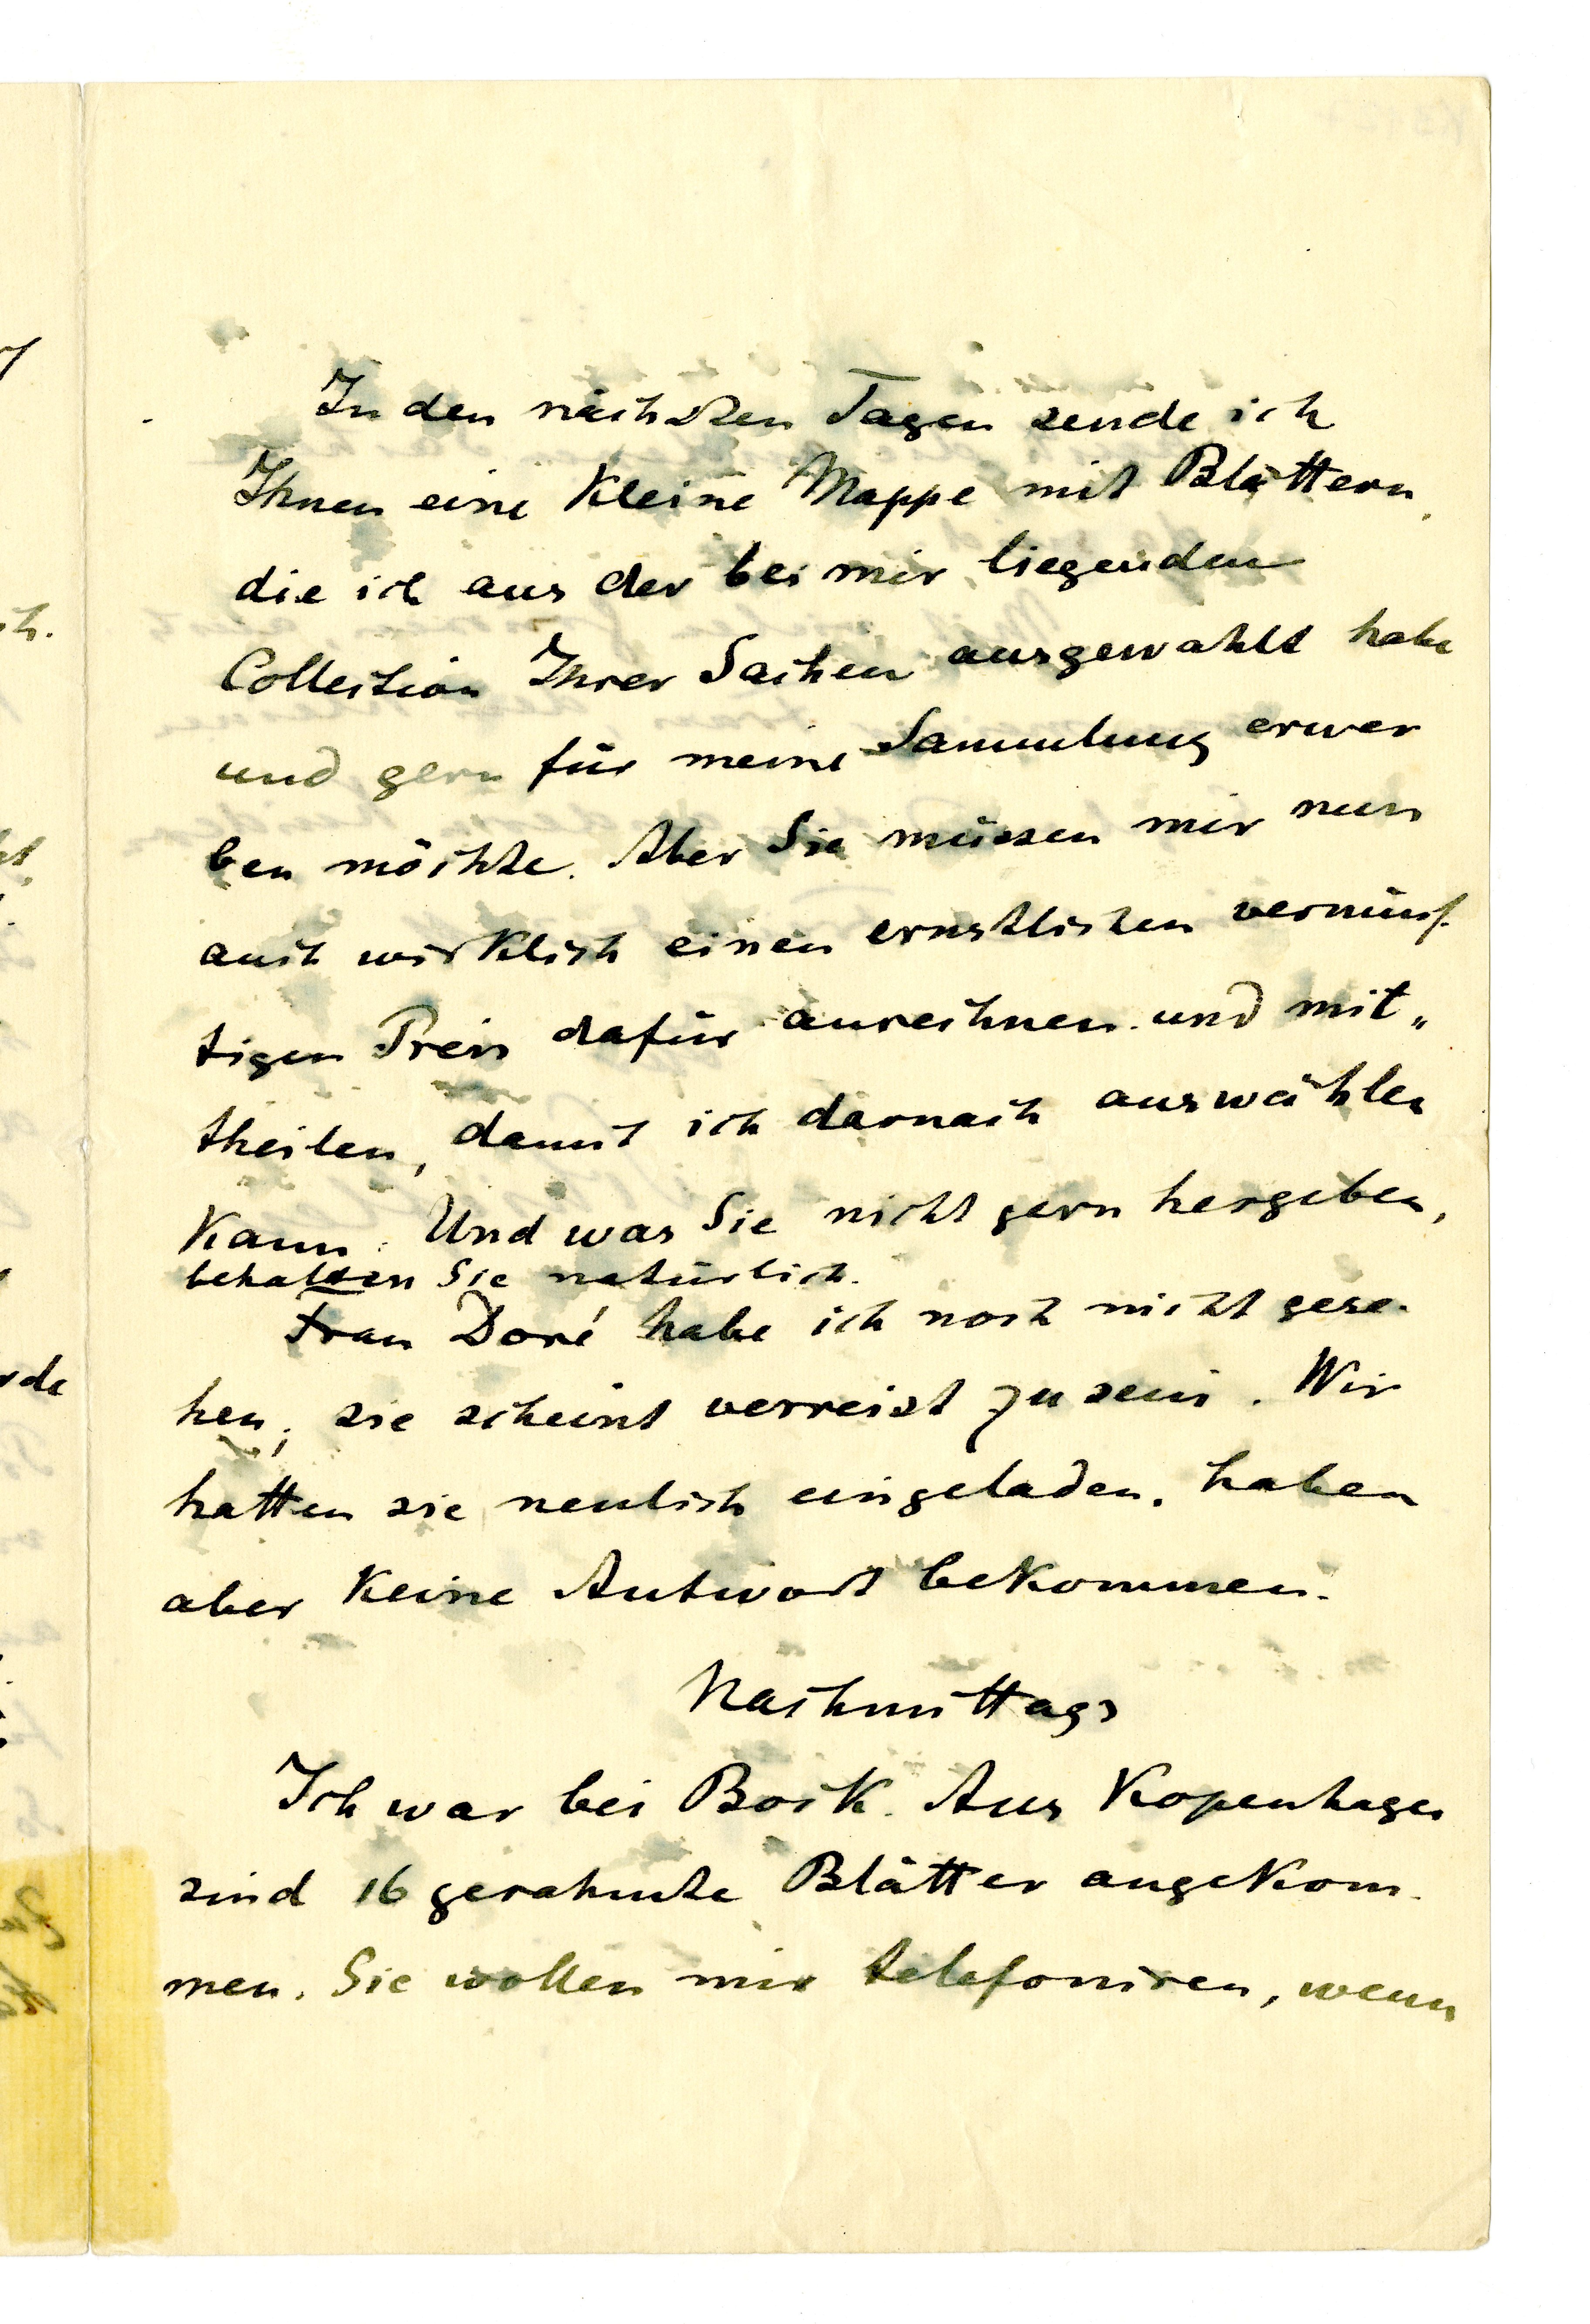 In den nächsten Tagen sende ich
Ihnen eine kleine Mappe mit Blättern,
die ich aus der bei mir liegenden
Collection Ihrer Sachen ausgewählt habe
und gern für meine Sammlung erwer
ben möchte. Aber Sie müssen mir nun
auch wirklich einen ernstlichen vernünf-
tigen Preis dafür anrechnen und mit„
theilen, damit ich darnach auswählen
kann. Und was Sie nicht gern hergeben,
behalten Sie natürlich.
Frau Doré habe ich noch nicht gese-
hen; sie scheint verreist zu sein. Wir
hatten sie neulich eingeladen, haben
aber keine Antwort bekommen.
Nachmittags
Ich war bei Bock. Aus Kopenhagen
sind 16 gerahmte Blätter angekom-
men. Sie wollen mir telefoniren, wenn